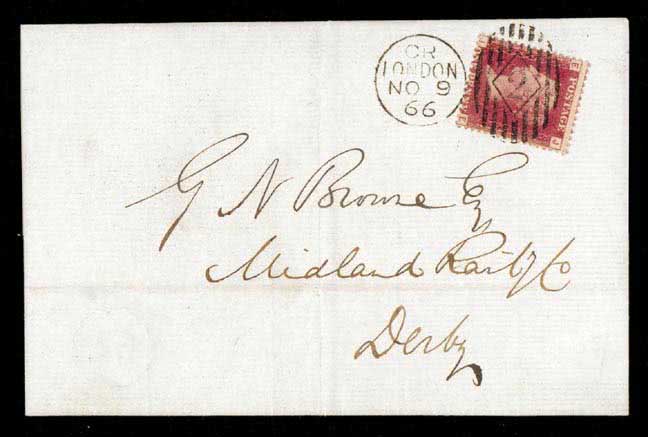 CR
LONDON
NO 9
66
POSTAGE
G N Browne Esq
Midland Railwy Co
Derby